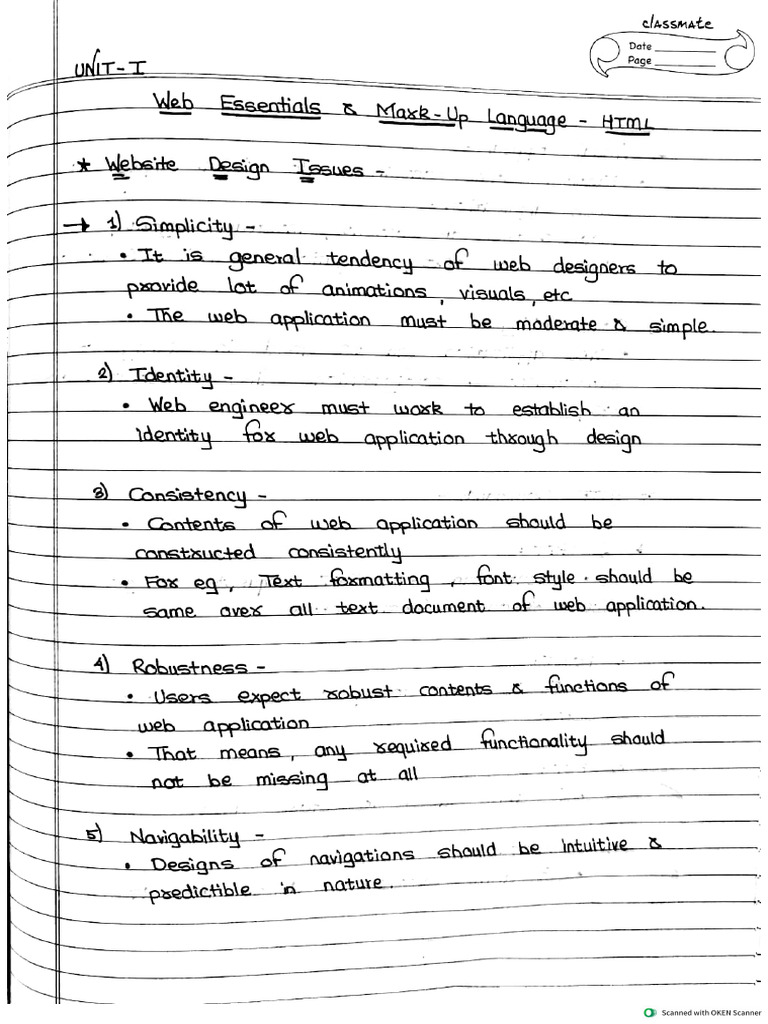 classmate
Date
Page
UNIT-I
Web Essentials & Mark-Up Language - HTML
* Website Design Issues -
→ 1) Simplicity -
• It is general tendency of web designers to
provide lot of animations, visuals, etc
• The web application must be moderate & simple.
2) Identity -
• Web engineer must work to establish an
identity for web application through design
3) Consistency -
• Contents of web application should be
constructed consistently
• For eg, Text formatting, font style should be
same over all text document of web application.
4) Robustness -
• Users expect robust contents & functions of
web application
• That means, any required functionality should
not be missing at all
5) Navigability -
• Designs of navigations should be intuitive &
predictible in nature.
Scanned with OKEN Scanner